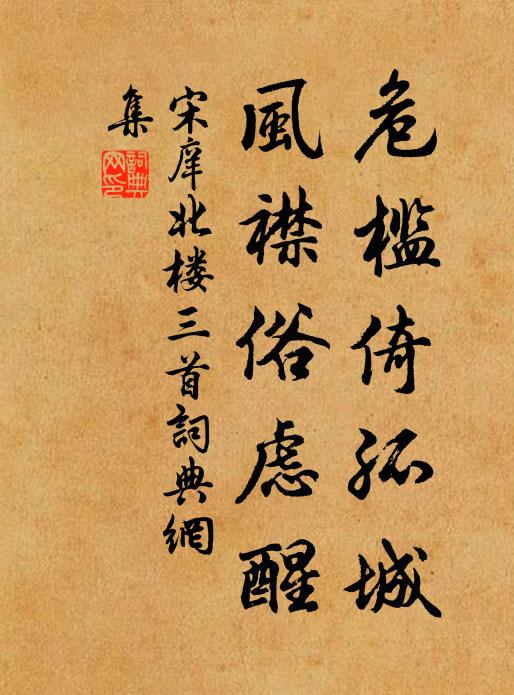 危槛倚孤城
風襟俗虑醒
宋庠北楼三首詞典網
集
詞典网印